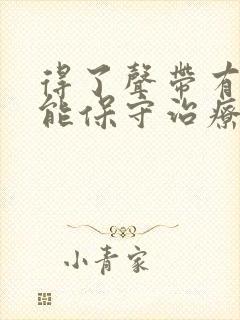 得了聲帶有
能保守治療
小青家